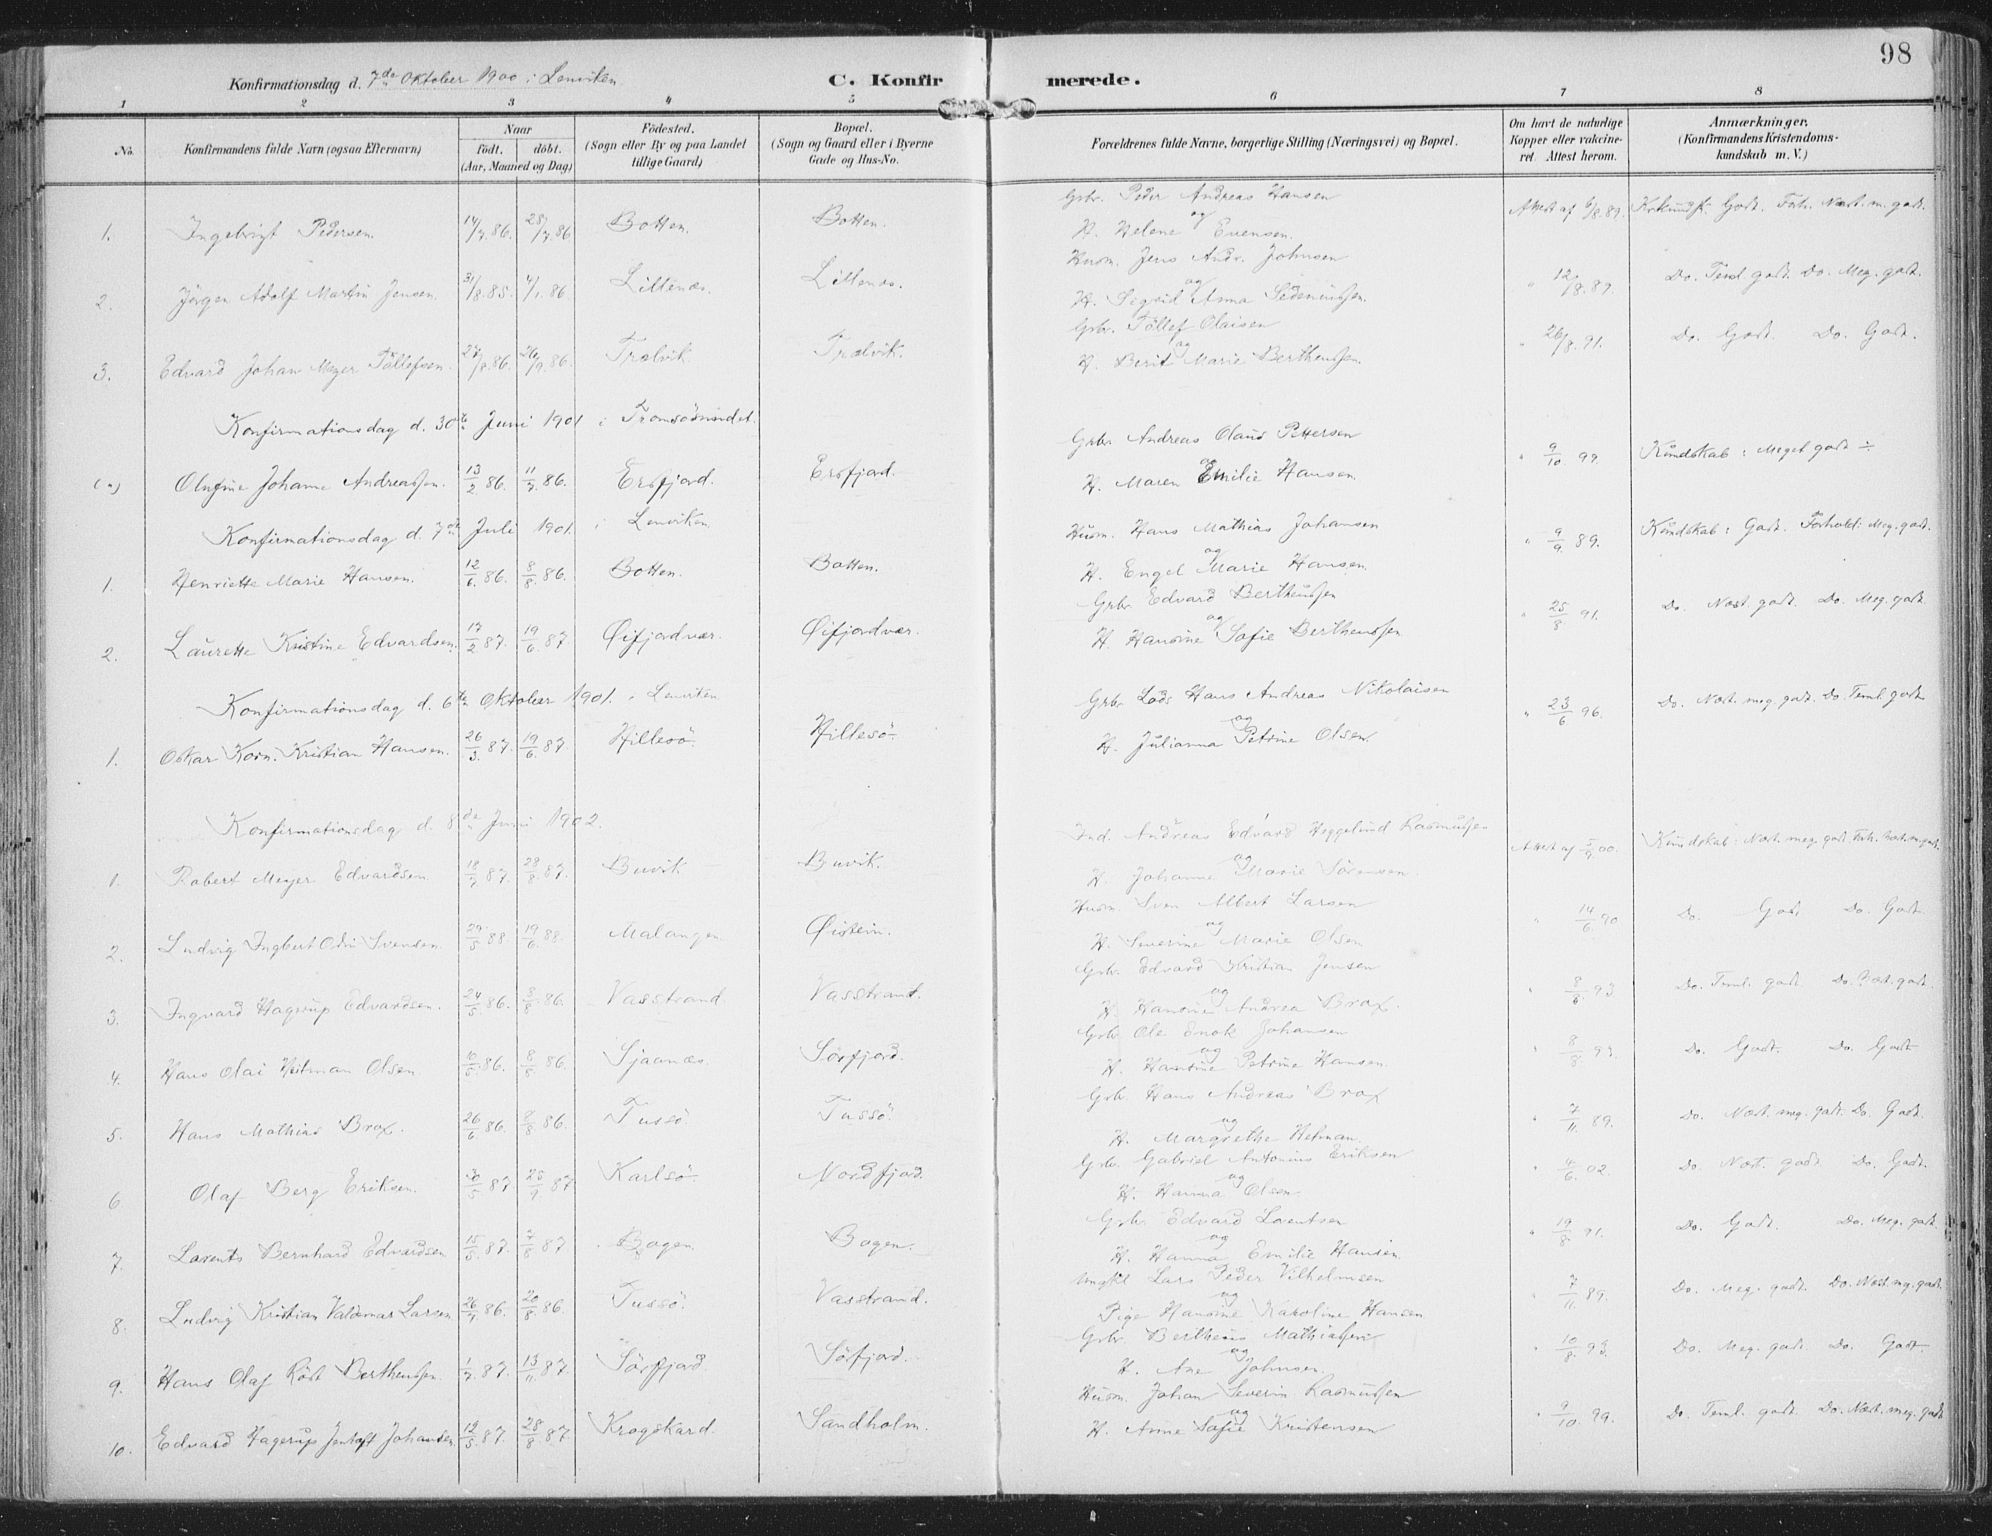 98
Konfirmationsdag d. 7de Oktober 1900 i Lenviken.
C. Konfirmerede.
1 2 3 4 5 6 7 8
No.
Konfirmandens fulde Navn (ogsaa Efternavn)
Naar
födt. döbt.
(Aar, Maaned og Dag)
Födested.
(Sogn eller By og paa Landet
tillige Gaard)
Bopæl.
(Sogn og Gaard eller i Byerne
Gade og Hus-No.
Forældrenes fulde Navne, borgerlige Stilling (Næringsvei) og Bopæl.
Om havt de naturlige
Kopper eller vakcine-
ret. Attest herom.
Anmærkninger.
(Konfirmandens Kristendoms-
kundskab m. V.)
1. Ingebrigt Pedersen. 14/7.86. 25/7.86 Botten. Botten. Grbr. Peder Andreas Hansen og H. Helene Evensen. Attest af 6/8.89. Godt. Forh. Næst. m. godt.
2. Jörgen Adolf Martin Jensen. 31/8.85. 4/1.86. Littenæs. Littenæs. Husm. Jens Andr. Johnsen og H. Sigrid Anna " 12/8.89. Do. Teml. godt. Do. Meg. godt.
3. Edvard Johan Meyer Töllefsen. 27/8.86. 26/9.86. Trælvik Trælvik. Grbr. Töllef Olaisen og H. Berit Marie Berthenssen. " 26/8.91. Do. Godt. Do. Godt.
Konfirmationsdag d. 30te Juni 1901 i Tromsösundet.
Olufine Johanne Andreassen. 13/2 86. 11/7.86. Ersfjord. Ersfjord. Grbr. Andreas Olaus Pettersen og H. Maren Emilie Hansen. " 9/10 99. Kundskab: Meget godt ÷
Konfirmationsdag d. 7de Juli 1901. i Lenviken.
1. Henriette Marie Hansen. 12/6.86. 8/8 86. Botten. Botten. Husm. Hans Mathias Johansen og H. Engel Marie Hansen. " 9/9 89. Kundskab: Godt. Forhold: Meg. godt.
2. Laurette Kristine Edvardsen. 17/2 87. 19/6.87 Øifjordvær. Øifjordvær. Grbr. Edvard Berthenssen og H. Hansine Sofie Berthenssen " 25/8 91. Do. Næst. godt. Do. Meg. godt.
Konfirmationsdag d. 6te Oktober 1901. i Lenviken
1. Oskar Korn. Kristian Hansen. 26/3.87. 19/6.87. Hillesö. Hillesö. Grbr. Lods Hans Andreas Nikolaisen og H. Julianna Petrine Olsen. " 23/6 96. Do. Næst. meg. godt. Do. Teml. godt
Konfirmationsdag d. 8de Juni 1902.
1. Robert Meyer Edvardsen 18/7 87. 28/8.87. Buvik Buvik. Ind. Andreas Edvard Heggelund Rasmussen og H. Johanne Marie Sörensen. Attest af 00. Kundskab: Næst. meg. godt. Forh. Næst. m. godt.
2. Ludvig Ingbert Odin Svensen. 29/5 88. 19/6 88. Malangen Øistein. Husm. Sven Albert Larsen og H. Severine Marie Olsen " 14/6.90 Do. Godt. Do. Godt.
3. Ingvard Hagerup Edvardsen. 24/5 86. 8/8 86. Vasstrand Vasstrand. Grbr. Edvard Kristian Jensen og H. Hansine Andrea Brox. " 8/8 93 Do. Teml. godt. Do. Næst. godt.
4. Hans Olai Heitman Olsen 10/5.86. 8/8 86. Sjaanæs. Sörfjord. Grbr. Ole Enok Johansen og H. Hansine Petrine Hansen. " 8/8 93. Do. Godt. Do. Godt
5. Hans Mathias Brox. 26/6 86. 8/8 86. Tussö. Tussö. Grbr. Hans Andreas Brox og H. Margrethe Hetman. " 7/11. 89. Do. Næst. meg. godt. Do. Godt.
6 Olaf Berg Eriksen. 30/5 87. 25/9 87. Karlsö Nordfjord. Grbr. Gabriel Antonius Eriksen og H. Hanna Olsen. " 4/6. 02. Do. Næst. godt. Do. Godt.
7. Lorents Bernhard Edvardsen 15/5 87. 7/8 87. Bogen. Bogen. Grbr. Edvard Lorentsen og H. Hanna Emilie Hansen. " 19/8 91. Do. Godt. Do. Meg. godt
8. Ludvig Kristian Valdemar Larsen 26/7 86. 20/8 86. Tussö. Vasstrand. Ungkl Lars Peder Vilhelmsen og Pige Hansine Karoline Hansen " 7/11 89. Do. Meg. godt. Do. Næst. mg. godt.
9. Hans Olaf Röst Berthenssen. 1/7 87. 13/11 87. Sörfjord. Sörfjord. Grbr. Bertheus Mathiassen og H. Ane Johnsen. " 10/8. 93. Do. Meg. godt. Do. Godt.
10. Edvard Hagerup Jentoft Johansen. 12/5 87. 28/8 87. Krogskard. Sandholm. Husm. Johan Severin Rasmussen og H. Anne Sofie Kristensen " 9/10. 99. Do. Teml. godt. Do. Næst. meg. godt